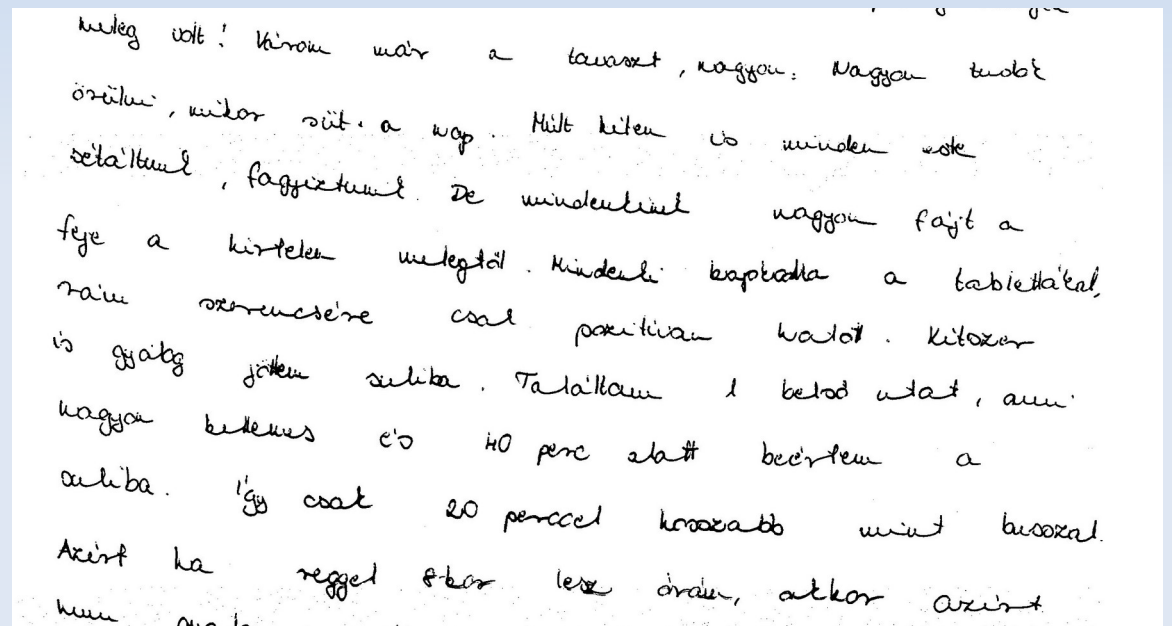 meleg volt! Várom már a tavaszt, nagyon. Nagyon tudok
örülni, mikor süt a nap. Múlt héten is minden este
sétáltunk, fagyiztunk. De mindenkinek nagyon fájt a
feje a hirtelen melegtől. Mindenki kapkodta a tablettákat,
rám szerencsére csak pozitívan hatott. Kétszer
is gyalog jöttem suliba. Találtam 1 belső utat, ami
nagyon kellemes és 40 perc alatt beértem a
suliba. Így csak 20 perccel hosszabb mint busszal.
Azért ha reggel 8kor lesz órám, akkor azért
nem